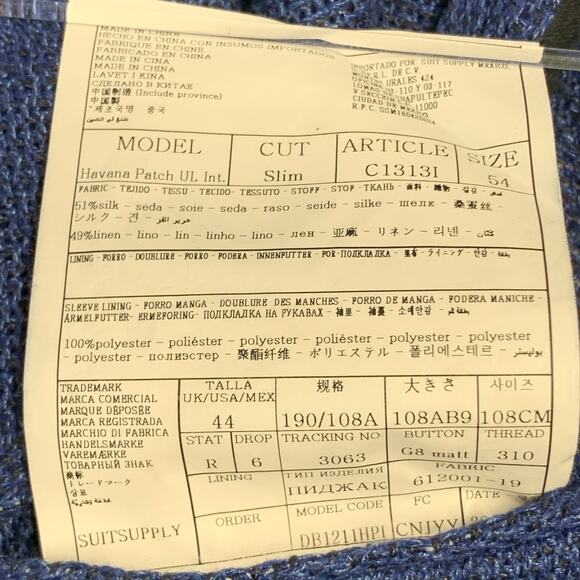 MADE IN CHINA
HECHO EN CHINA CON INSUMOS IMPORTADOS
FABRIQUE EN CHINE
FABRICADO EN CHINA
MADE IN CINA
MADE IN CHINA
LAVET I KINA
СДЕЛАНО В КИТАЕ
中国制造 (Include province)
中国製
제조국명 중국
صنع في الصين
IMPORTADO POR: SUIT SUPPLY MEXICO,
S. DE R.L. DE C.V.
URALES 424
LOMAS 110 Y 03-117
V SECCION CHAPULTEPEC
CIUDAD DE MEXICO 11000
R.F.C. SSM160420GI4
MODEL CUT ARTICLE SIZE
Havana Patch UL Int. Slim C1313I 54
FABRIC - TEJIDO - TESSU - TECIDO - TESSUTO - STOFF - STOF - ТКАНЬ - 面料 - 織物 - 겉감 - قماش
51%silk - seda - soie - seda - raso - seide - silke - шелк - 桑蚕丝
- シルク - 견 - حرير الفز
49%linen - lino - lin - linho - lino - лен - 亚麻 - リネン - 리넨 - كتان
LINING - FORRO - DOUBLURE - FORRO - FODERA - INNENFUTTER - FOR - ПОДКЛАДКА - 里布 - ライニング - 안감 - بطانة
SLEEVE LINING - FORRO MANGA - DOUBLURE DES MANCHES - FORRO DE MANGA - FODERA MANICHE -
ÄRMELFUTTER - ERMEFORING - ПОДКЛАДКА НА РУКАВАХ - 袖里 - 袖裏 - 소매안감 -
100%polyester - poliéster - polyester - polyester - polyester - polyester
- polyester - полиэстер - 聚酯纤维 - ポリエステル - 폴리에스테르 - بوليستر
TRADEMARK
MARCA COMERCIAL
MARQUE DÉPOSÉE
MARCA REGISTRADA
MARCHIO DI FABRICA
HANDELSMARKE
VAREMÆRKE
ТОВАРНЫЙ ЗНАК
商标
トレードマーク
상표
علامة تجارية
SUITSUPPLY
TALLA UK/USA/MEX 规格 大きさ 사이즈
44 190/108A 108AB9 108CM
STAT DROP TRACKING NO BUTTON THREAD
R 6 3063 G8 matt 310
LINING ТИП ИЗДЕЛИЯ FABRIC
ПИДЖАК 612001-19
ORDER MODEL CODE FC DATE
DB1211HPI CNJYY